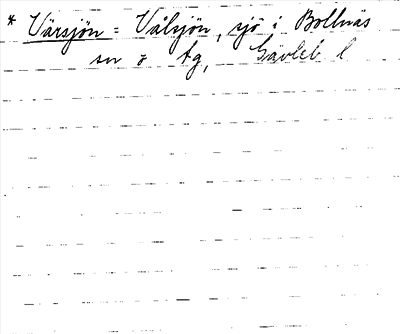 * Värsjön = Vålsjön, sjö i Bollnäs
sn o tg, Gävleb l